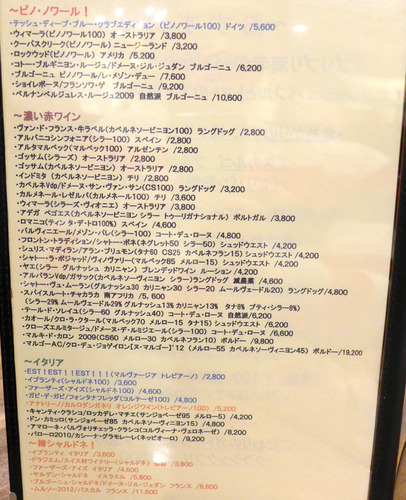 ～ピノ・ノワール！
・テッシュ・ディープ・ブルー・クラブエディション (ピノノワール100) ドイツ /5,600
・ウィマーラ(ピノノワール100) オーストラリア /3,800
・クーパスクリーク(ピノノワール) ニュージーランド /3,200
・ロックウッド(ピノノワール) アメリカ /5,200
・コトー・ブルギニヨン・ルージュ/ドメーヌ・ジル・ジュダン ブルゴーニュ /6,200
・ブルゴーニュ ピノノワール/レ・メゾン・デュー /7,600
・ショイレポーヌ/フランソワ・ゲ ブルゴーニュ /9,200
・ベルナンベルジュレス・ルージュ2009 自然派 ブルゴーニュ /10,600
～濃い赤ワイン
・ヴァン・ド・フランス・キラベル(カベルネソービニヨン100) ラングドッグ /2,800
・アルバニコシンフォニア(シラー100) スペイン /2,800
・アルタマルベック(マルベック100) アルゼンチン /2,800
・ゴッサム(シラーズ) オーストラリア /2,800
・ゴッサム(カベルネソービニヨン) オーストラリア /2,800
・インドミタ (カベルネソービニヨン) チリ /2,800
・カベルネVdp/ドメーヌ・サン・ヴァン・サン(CS100) ラングドッグ /3,200
・カルメネール・レゼルバ(カルメネール100) チリ /3,600
・ウィマーラ(シラーズ・ヴィオニエ) オーストラリア /3,800
・アデガ ペゴエス(カベルネソービニヨン シラー トゥーリガナショナル) ポルトガル /3,800
・ロマニコ(ティンタ・デ・トロ100%) スペイン /4,600
・パルヴィニエール/メゾン・パレ(シラー100) コート・デュ・ローヌ /4,800
・フロントン・トラディション/シャトー・ボネ(ネグレット50 シラー50) シュッドウエスト /4,200
・シュリス・マディラン/アラン・ブリュモン(タナ60 CS25 カベルネフラン15) シュッドウエスト /4,200
・シャトー・ラ・ボジャッド/ヴィノヴァリー(マルベック85 メルロー15) シュッドウエスト /4,200
・ヤエ(シラー グルナッシュ カリニャン) ブレンデッドワイン ルーション /4,200
・アルバランVdp/ガリネック(カベルネソーヴィニヨン シラー)ラングドッグ 減農薬 /4,600
・シャトー・ヴュ・ムーラン(グルナッシュ30 カリニャン30 シラー20 ムールヴェードル20) ラングドッグ/4,800
・スパイスルート・チャカラカ 南アフリカ /5,600
(シラー29% ムールヴェードル29% グルナッシュ13% カリニャン13% タナ8% プティ・シラー8%)
・テール・ド・ソレイユ(シラー60 グルナッシュ40) コート・デュ・ローヌ 自然派/6,200
・カオール/クロ・ラ・クタール(マルベック70 メルロー15 タナ15) シュッドウエスト /6,200
・クローズエルミタージュ/ドメーヌ・デ・ルミジエール(シラー100) コート・デュ・ローヌ /6,800
・マルキ・ド・カロン 2009(CS60 メルロー30 カベルネフラン10) ボルドー /9,800
・マルゴーAC/クロ・デュ・ジョゲイロン[ヌ・マルゴー]'12 (メルロー55 カベルネソーヴィニヨン45) ボルドー/19,200
～イタリア
・EST！EST！！EST！！！(マルヴァージア トレビアーノ) /2,800
・イプランティ(シャルドネ100) /3,600
・ファーザーズ・アイズ(シャルドネ100) /4,600
・ガビ・デ・ガビ/フォンタナフレッダ(コルテーゼ100) /4,800
・アナトリーノ/カルロタンガネリ オレンジワイン(トレビアーノ100) /5,200
・キャンティ・クラシコ/ロッカデレ・マチエ(サンジョベーゼ95 メルロー5) /4,200
・ドン・カミッロ(サンジョベーゼ85 カベルネソーヴィニヨン15) /4,200
・アマローネ・バルヴォリチェッラ・クラシコ(コルヴィーナ・ヴェロネーゼ) /8,200
・バローロ2010/カシーナ・グラモレーレ(ネッビオーロ) /9,200
～樽シャルドネ！
・イプランティ イタリア /3,600
・ファーザーズ・アイズ イタリア /4,600
・ヤルデン・シャルドネ イスラエル /5,800
・ムルソー2012/パスカル フランス /11,600